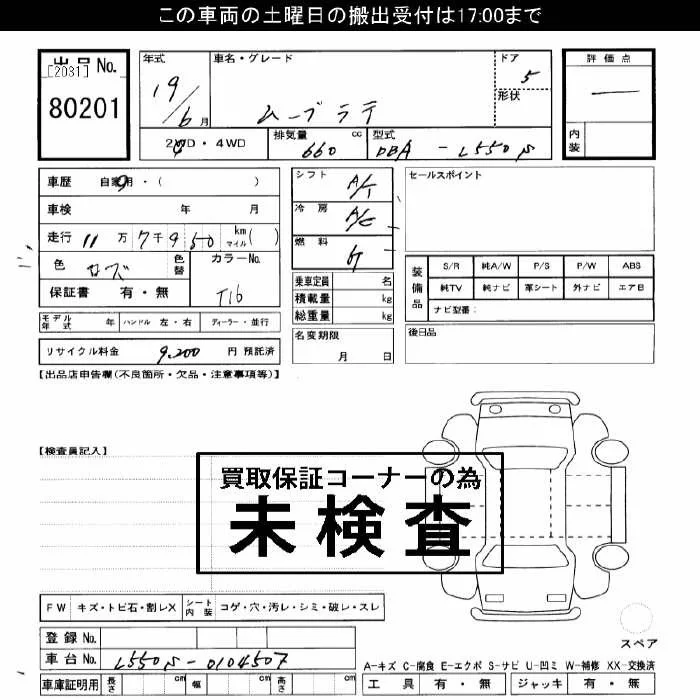 この車両の土曜日の搬出受付は17:00まで
出品No.
[2031]
80201
年式
19/6月
車名・グレード
ムーブラテ
ドア
5
形状
評価点
内装
2WD・4WD
排気量 cc
660
型式
DBA - L550S
車歴 自家用・( )
車検 年 月
走行 11万7千950 km マイル( )
色
色替
カラーNo.
T16
保証書 有・無
モデル年式 年 ハンドル 左・右 ディーラー・並行
リサイクル料金 9,200 円 預託済
シフト A/T
冷房 A/C
燃料
乗車定員 名
積載量 kg
総重量 kg
名変期限
月 日
セールスポイント
装備品
S/R 純A/W P/S P/W ABS
純TV 純ナビ 革シート 外ナビ エアB
ナビ型番:
後日品
【出品店申告欄(不良箇所・欠品・注意事項等)】
【検査員記入】
買取保証コーナーの為
未検査
FW キズ・トビ石・割レX シート内装 コゲ・穴・汚レ・シミ・破レ・スレ
登録No.
車台No. L550S-0104507
車庫証明用 長さ cm 幅 cm 高さ cm
スペア
A-キズ C-腐食 E-エクボ S-サビ U-凹ミ W-補修 XX-交換済
工具 有・無 ジャッキ 有・無